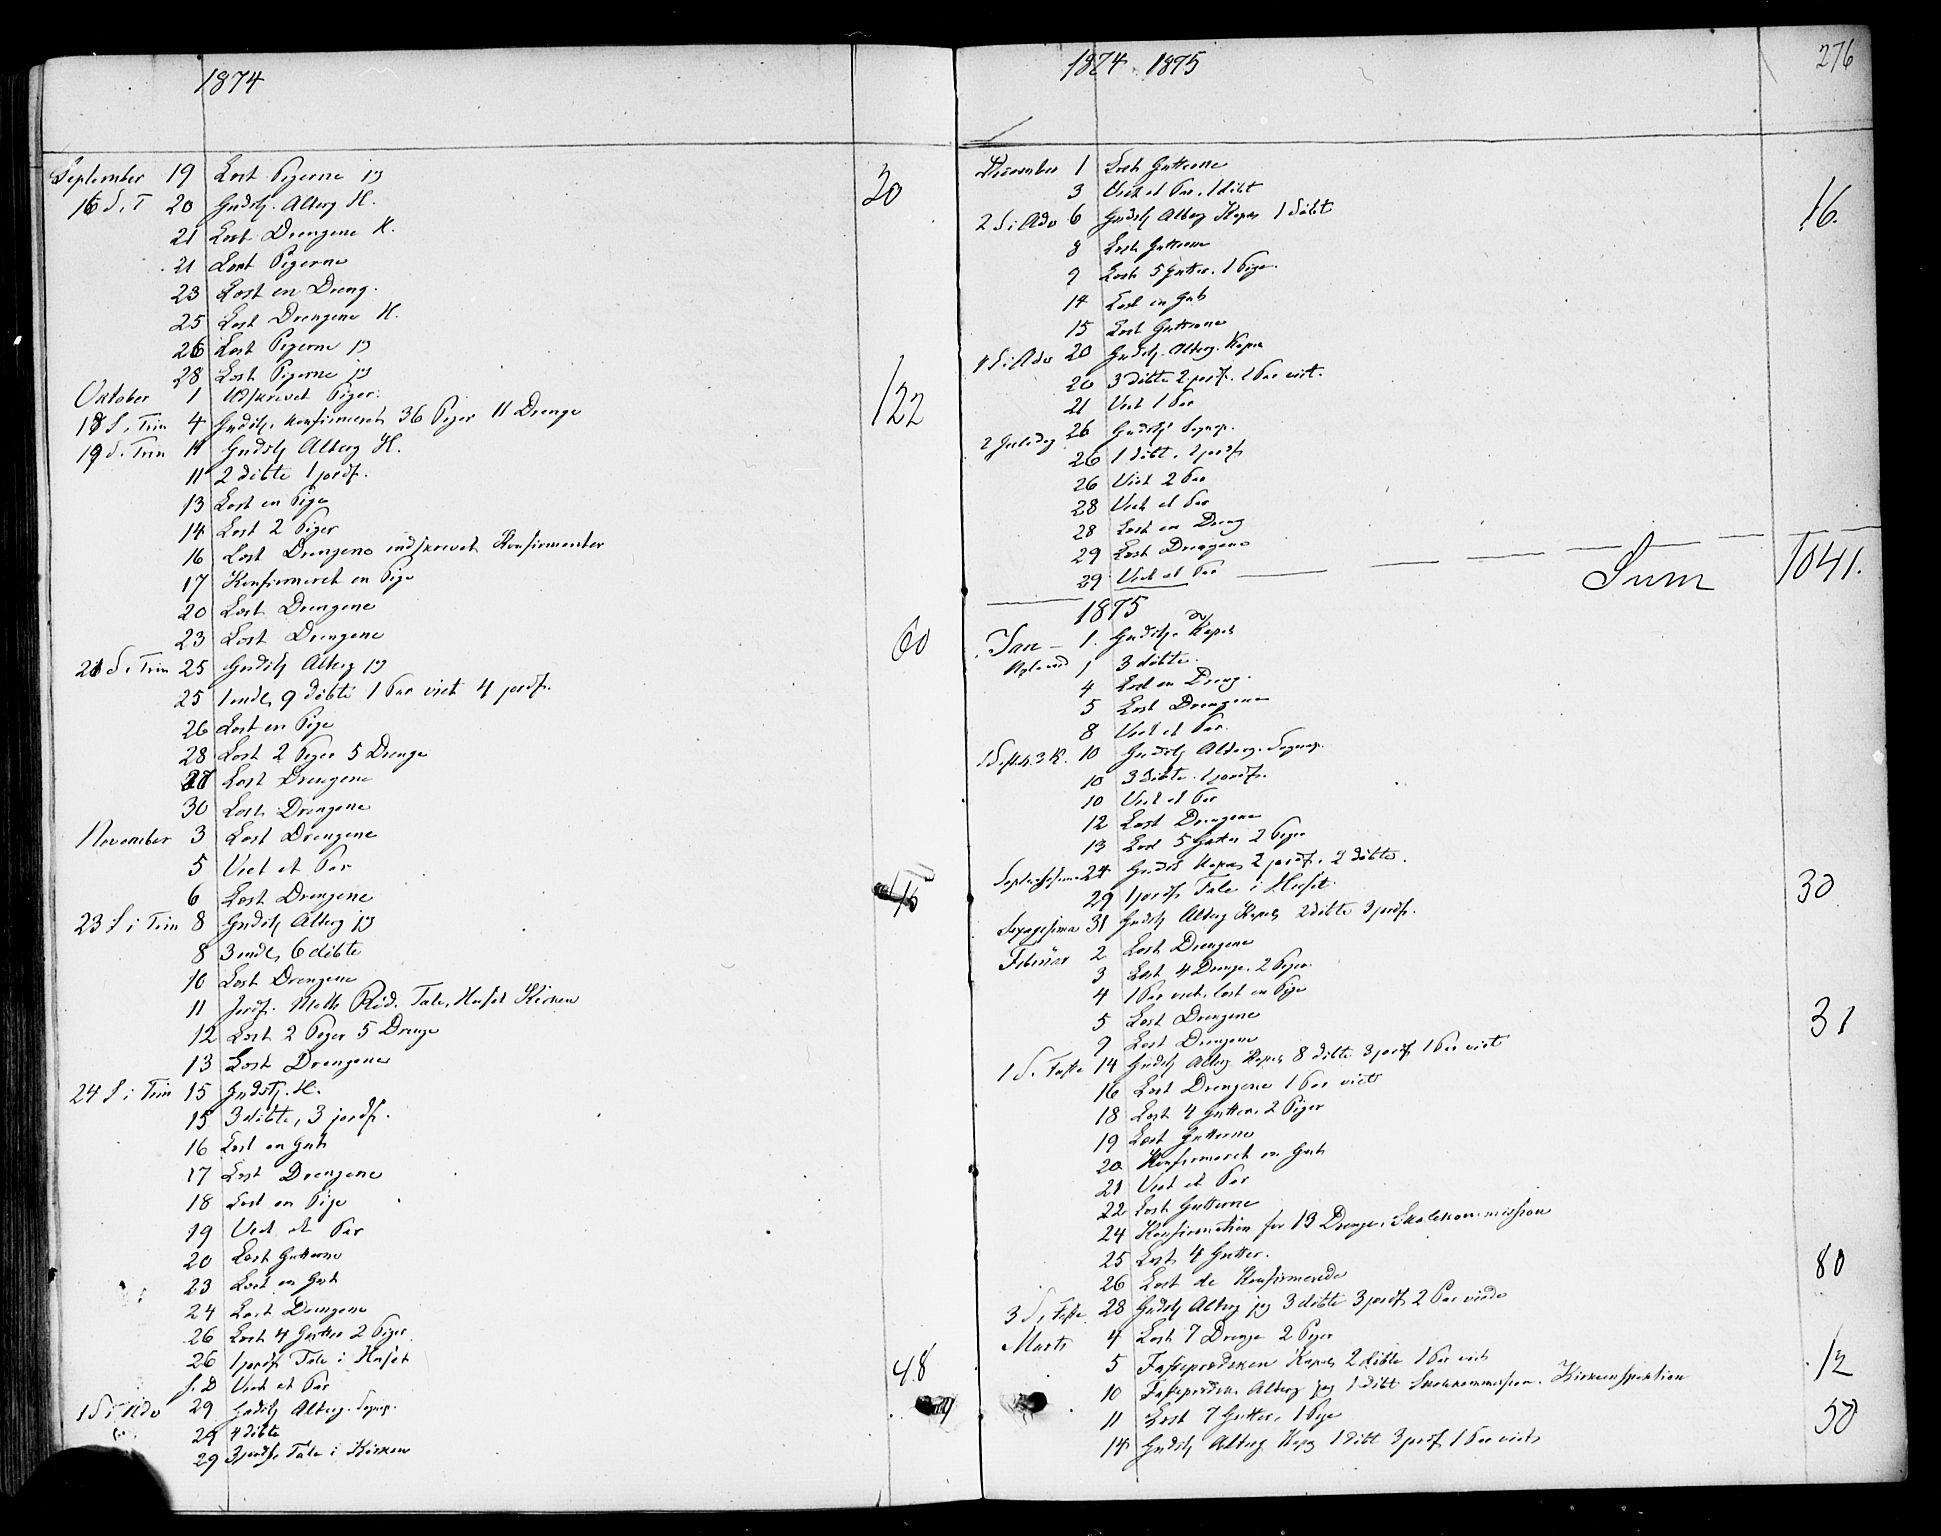 1874
September 19 Læst Pigerne jg
16 S. T 20 Gudstj. Altergg H. 20
21 Læst Drengene K.
21 Læst Pigerne
23 Læst en Dreng.
25 Læst Drengene K.
26 Læst Pigerne jg
28 Læst Pigerne jg
Oktober 1 Udskrevet Piger
18 S. Trin 4 Gudstj. konfirmeret 36 Piger 11 Drenge 122
19 S. Trin 11 Gudstj Alterg H.
11 2 døbte 1 jordf.
13 Læst en Pige
14 Læst 2 Piger
16 Læst Drengene indskrevet Konfirmenter
17 Konfirmeret en Pige
20 Læst Drengene
23 Læst Drengene
21 S. Trin 25 Gudstj Alterg jg 60
25 1 indl, 9 døbte 1 Par viet 4 jordf.
26 Læst en Pige
28 Læst 2 Piger 5 Drenge
27 Læst Drengene
30 Læst Drengene
November 3 Læst Drengene
5 Viet et Par
6 Læst Drengene
23 S i Trin 8 Gudstj Alterg jg
8 3 indl, 6 døbte
10 Læst Drengene
11 Jordf. Tale, Huset Kirken
12 Læst 2 Piger 5 Drenge
13 Læst Drengene
24 S i Trin 15 Gudstj. H.
15 3 døbte, 3 jordf.
16 Læst en Gut
17 Læst Drengene
18 Læst en Pige
19 Viet et Par
20 Læst Gutterne
23 Læst en Gut
24 Læst Drengene
26 Læst 4 Gutter 2 Piger
26 1 jordf. Tale i Huset
s. D Viet et Par
1 S i Adv 29 Gudstj Alterg. Sognep. 48
29 4 døbte
29 3 jordf. Tale i Kirken
1874 1875
276
December 1 Læst Gutterne
3 Viet et Par, 1 døbt
2 S i Adv 6 Gudstj Alterg Kapel 1 døbt 16
8 Læst Gutterne
9 Læst 5 Gutter. 1 Pige.
14 Læst en Gut
15 Læst Gutterne
4 S i Adv 20 Gudstj. Alterg. Kapel
20 3 døbte 2 jordf. 1 Par viet.
21 Viet 1 Par
2 Juledag 26 Gudstj Sognep.
26 1 døbt. 1 jordf
26 Viet 2 Par
28 Viet et Par
28 Læst en Dreng
29 Læst Drengene
29 Viet et Par Sum 1041.
1875
Jan - 1. Gudstj. Kapel
1 3 døbte.
4 Læst en Dreng.
5 Læst Drengene
8 Viet et Par.
10 Gudstj Alterg. Sognep.
10 3 døbte. 1 jordf.
10 Viet et Par
12 Læst Drengene
13 Læst 5 Gutter 2 Piger
Septuagesima 24 Gudst Kapel 2 jordf. 2 døbte.
29 1 jordf. Tale i Huset. 30
Sexagesima 31 Gudstj Alterg Kapel 2 døbte 3 jordf.
Februar 2 Læst Drengene
3 Læst 4 Drenge. 2 Piger.
4 1 Par viet, læst en Pige
5 Læst Drengene
9 Læst Drengene 31
1 S. Faste 14 Gudstj Alterg Kapel 8 døbte 3 jordf 1 Par viet
16 Læst Drengene 1 Par viet
18 Læst 4 Gutter, 2 Piger
19 Læst Gutterne
20 Konfirmeret en Gut
21 Viet et Par
22 Læst Gutterne
24 Konfirmation for 13 Drenge, Skolekommission
25 Læst 4 Gutter.
26 Læst de Konfirmerede 80
3 S. i Faste 28 Gudstj Alterg jeg 3 døbte 3 jordf 2 Par viede
Marts 4 Læst 7 Drenge 2 Piger
5 Fasteprædiken Kapel 2 døbte 1 Par viet 12
10 Fasteprædik. Alterg jeg 1 døbt Skolekommission. Kirkeinspektion
11 Læst 7 Gutter, 1 Pige 50
14 Gudstj Alterg Kapel 1 døbt 3 jordf 1 Par viet